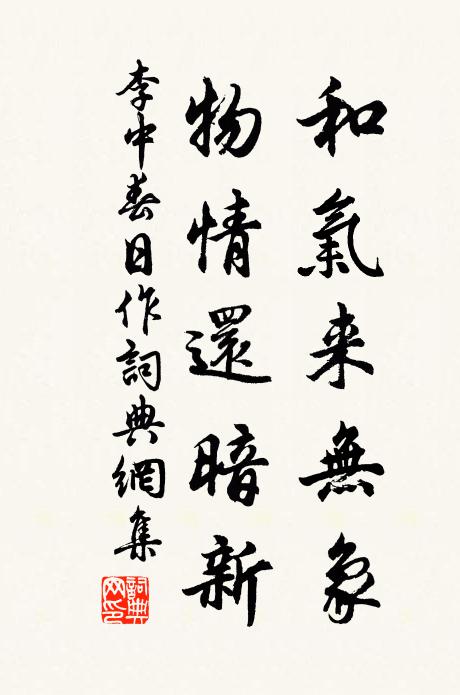 和氣来無象
物情還暗新
李中春日作詞典網集
詞典
网印